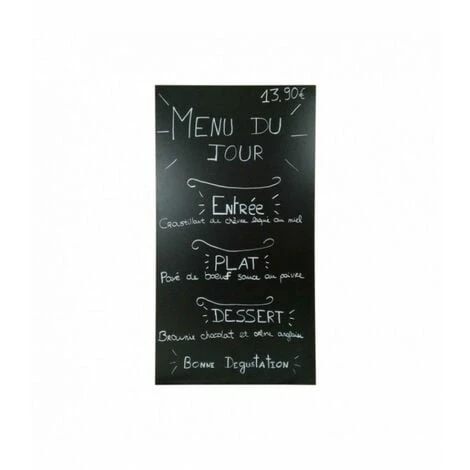 13,90€
MENU DU
JOUR
ENTRÉE
Croustillant de chèvre au miel
PLAT
Pavé de bœuf sauce au poivre
DESSERT
Brownie chocolat et crème anglaise
BONNE DEGUSTATION